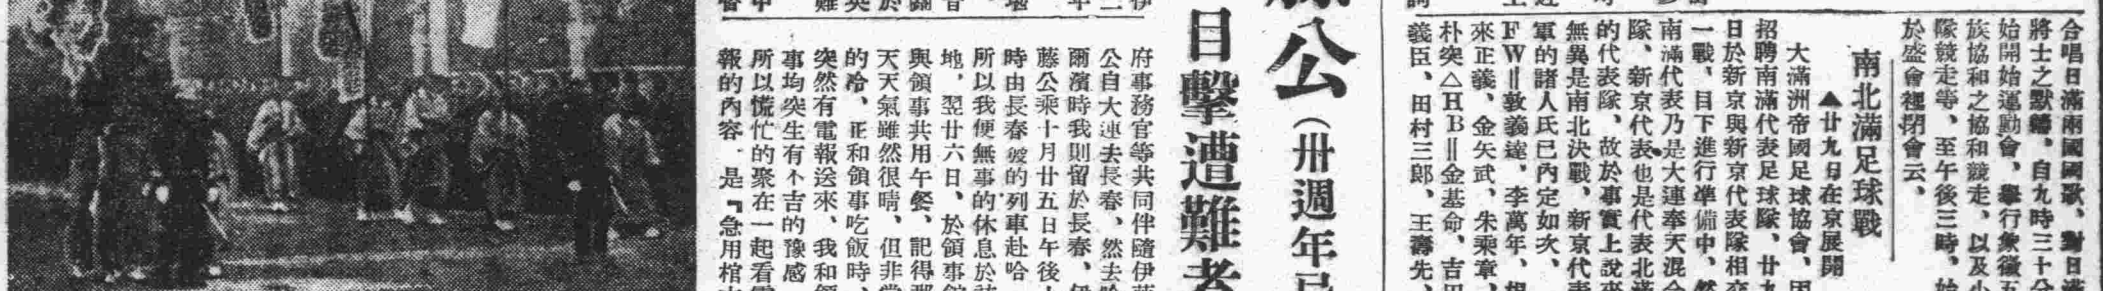 合唱日滿兩國國歌、對日滿
將士之默禱、自九時三十分
始開始運動會、舉行象徵五
族協和之協和競走、以及小
隊競走等、至午後三時、始
於盛會裡閉會云、
南北滿足球戰
▲廿九日在京展開
大滿洲帝國足球協會、因
招聘南滿代表足球隊、廿九
日於新京與新京代表隊相交
一戰、目下進行準備中、然
南滿代表乃是大連奉天混合
隊、新京代表也是代表北滿
的代表隊、故於事實上說來
無異是南北決戰、新京代表
軍的諸人氏已內定如次、
FW‖敦義達、李萬年、根
來正義、金矢武、朱乘章、
朴突△HB‖金基命、吉田
義臣、田村三郎、王壽先、
公（卅週年忌
目擊遭難者
府事務官等共同伴隨伊藤
公自大連去長春、然去哈
爾濱時我則留於長春、伊
藤公乘十月廿五日午後十
時由長春發的列車赴哈
所以我便無事的休息於該
地、翌廿六日、於領事館
與領事共用午餐、記得那
天天氣雖然很晴、但非常
的冷、正和領事吃飯時、
突然有電報送來、我和領
事均突生有不吉的豫感
所以慌忙的聚在一起看電
報的內容、是『急用棺木